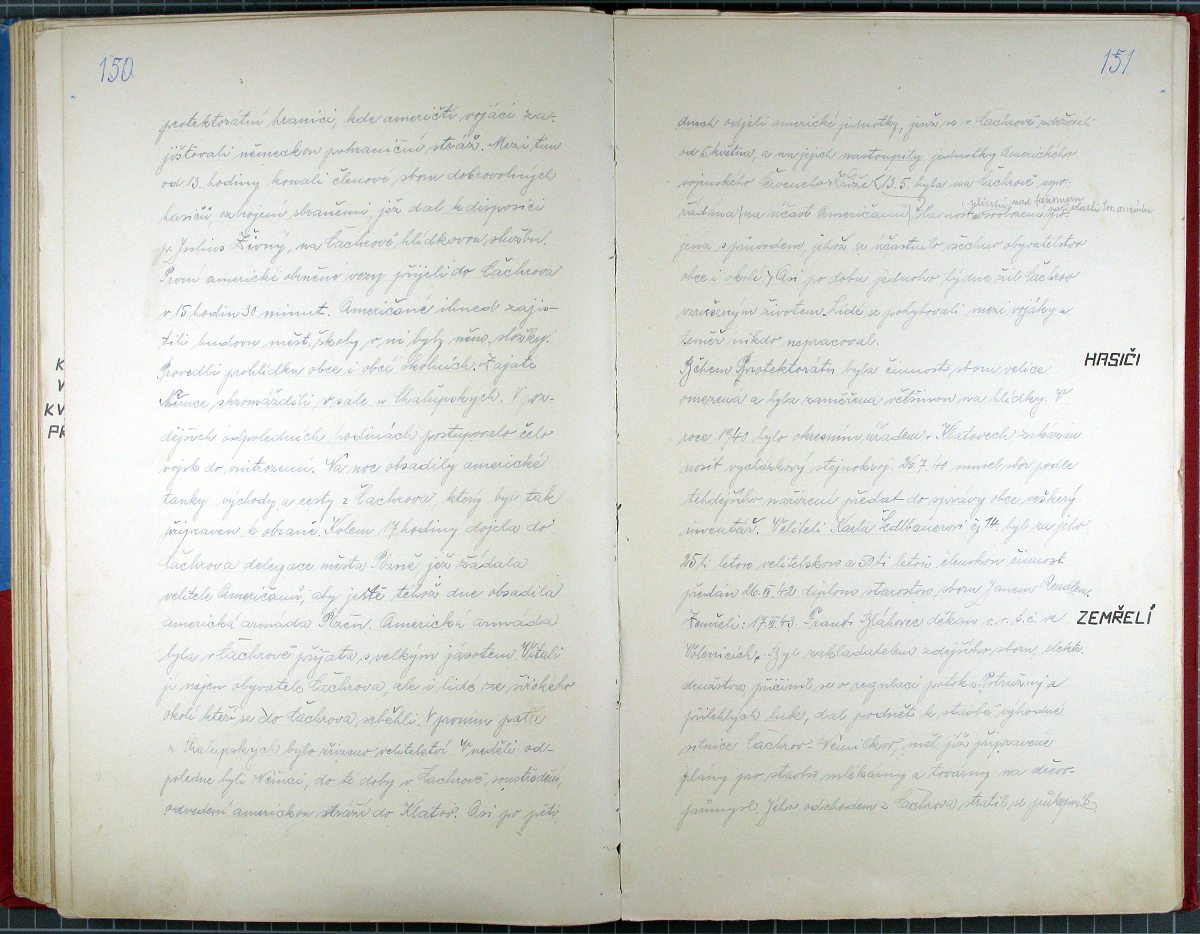 150
protektorátní hranici, kde američtí vojáci za-
jišťovali německou pohraniční stráž. Mezi tím
od 13. hodiny konali členové sboru dobrovolných
hasičů, ozbrojení zbraněmi, jež dal k disposici
p. Julius Živný, na Čachrově hlídkovou službu.
První americké obrněné vozy přijeli do Čachrova
v 15 hodin 30 minut. Američané ihned zajis-
tili budovu měšť. školy v ní byly něm. složky.
Provedli prohlídku obce i obcí okolních. Zajaté
Němce shromáždili v sále u Chalupských. V poz-
dějších odpoledních hodinách postupovalo čelo
vojsk do vnitrozemí. Na noc obsadily americké
tanky východy a cesty z Čachrova který byl tak
připraven k obraně. Kolem 17 hodiny dojela do
Čachrova delegace města Plzně jež žádala
velitele Američanů, aby ještě téhož dne obsadila
americká armada Plzeň. Americká armada
byla v Čachrově přijata s velkým jasotem. Vítali
ji nejen obyvatelé Čachrova, ale i lidé ze širokého
okolí kteří se do Čachrova seběhli. V prvním patře
u Chalupských bylo zřízeno velitelství. V neděli od-
poledne byli Němci, do té doby v Čachrově soustředění,
odvedeni americkou stráží do Klatov. Asi po pěti
K
V
KV
PR
151
dnech odjeli americké jednotky, jenž se v Čachrově zdržovali
od 5 května, a na jejich nastoupily jednotky Amerického
vojenského Červeného Kříže. 13.5. byla na Čachrově uspo-
řádána na účast Američanů slavnost osvobození
vítězství nad fašismem
naší vlasti Sov. armádou
s průvodem jehož se účastnilo všechno obyvatelstvo
obce i okolí. Asi po dobu jednoho týdne žil Čachrov
vzrušeným životem. Lidé se pohybovali mezi vojáky a
téměř nikdo nepracoval.
Během Protektorátu byla činnost sboru velice
omezena a byla zaměřena většinou na hlídky. V
roce 1940 bylo okresním úřadem v Klatovech zakázáno
nosit vycházkový stejnokroj. 26.7.40 musel sbor podle
tehdejšího nařízení předat do správy obce veškerý
inventář. Veliteli Karlu Sedlbauerovi čp 14. byl za jeho
25ti letou velitelskou a 50ti letou členskou činnost
předán 26.IV.42 diplom starostou sboru Janem Rendlem.
Zemřeli: 17.IV.43. Frant. Bláhovec děkan v. v. t. č. ve
Volenicích. Byl zakladatelem zdejšího sboru, elektr.
družstva přičinil se o regulaci potoku Pstružný a
přilehlých luk, dal podnět k stavbě výhodné
silnice Čachrov - Nemilkov, měl již připravené
plány pro stavbu mlékárny a továrny na dřevo-
průmysl. Jeho odchodem z Čachrova stratil se průkopník
HASIČI
ZEMŘELÍ